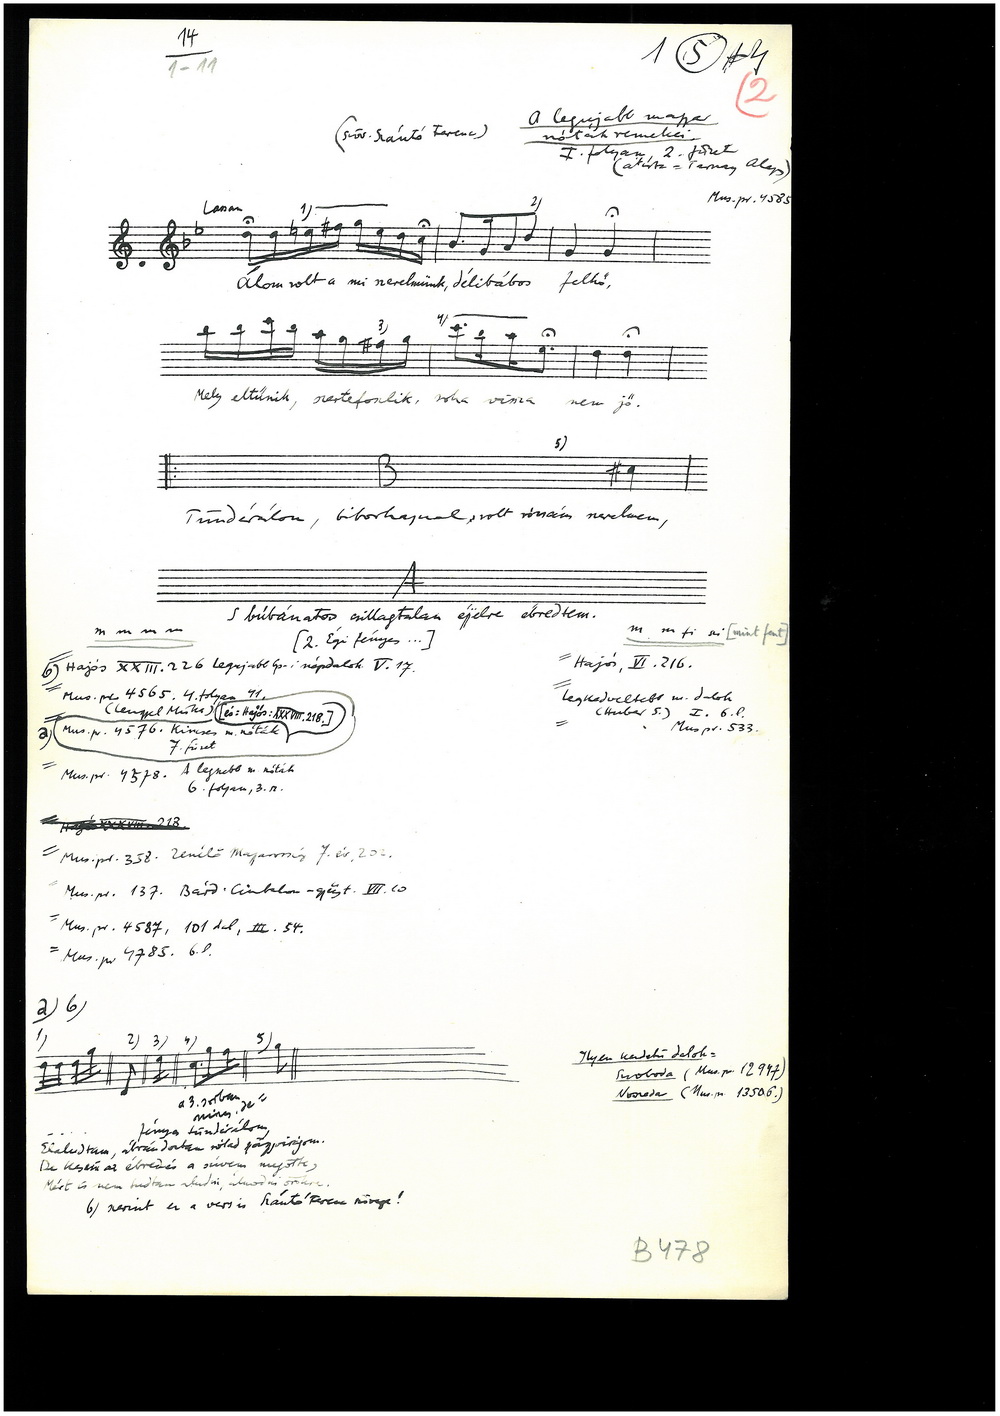 14
1-11
1 (5) #4
(2
(Szöv. Szántó Ferenc)
A legujabb magyar
nóták remekei
I. folyam, 2. füzet
(átírta = Tarnay Alajos)
Mus.pr. 4585
Lassan
1) 2)
Álom volt a mi szerelmünk, délibábos felhő,
3) 4)
Mely eltűnik, szertefoszlik, soha vissza nem jő.
5)
B
Tündérálom, biborhajnal, volt rózsám szerelmem,
A
S búbánatos csillagtalan éjjelre ébredtem.
[2. Égi fényes ...]
m m m m
m m fi mi [mint fent]
b) Hajós XXIII. 226 Legujabb népdalok V. 17.
= Hajós, VI. 216.
= Mus.pr. 4565. 4. folyam 41.
(Lengyel Miska) [és: Hajós: XXXVIII. 218.]
= Legkedveltebb m. dalok
(Huber S.) I. 6. l.
= Mus.pr. 533.
a) Mus.pr. 4576. Kincses m. nóták
7. füzet
= Mus.pr. 4578. A legszebb m. nóták
6. folyam, 3. sz.
Hajós XXXVIII. 218
= Mus.pr. 358. Zenélő Magyarország 7. év, 202.
= Mus.pr. 137. Bárd: Cimbalom-gyűjt. VII. 10
= Mus.pr. 4587, 101 dal, III. 54.
= Mus.pr 4785. 6. l.
a) b)
1) 2) 3) 4) 5)
Ilyen kezdetű dalok=
Svoboda (Mus.pr. 12947)
Nooseda (Mus.pr. 13506.)
a 3. sorban
nincs "je"
..... fényes tündérálom,
Elaludtam, ábrándoztam rólad gyöngyvirágom.
De késői az ébredés a szívem megölte,
Mért is nem tudtam aludni, álmodni örökre.
b) szerint ez a vers is Szántó Ferenc szövege!
B 478